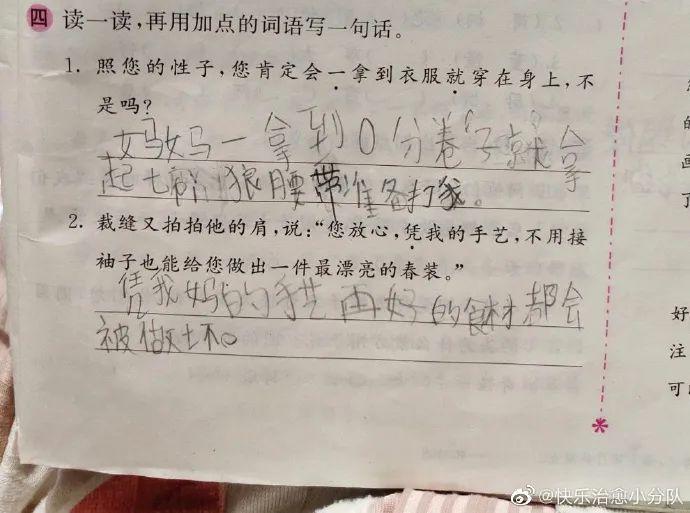 四 读一读,再用加点的词语写一句话。
1. 照您的性子,您肯定会一拿到衣服就穿在身上,不
是吗?
妈妈一拿到0分卷子就拿
起七匹狼腰带准备打我。
2. 裁缝又拍拍他的肩,说:“您放心,凭我的手艺,不用接
袖子也能给您做出一件最漂亮的春装。”
凭我妈的手艺再好的食材都会
被做坏。
好
注
可
@快乐治愈小分队